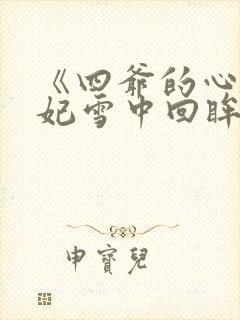 《四爷的心
妃雪中回眸
申寳兒